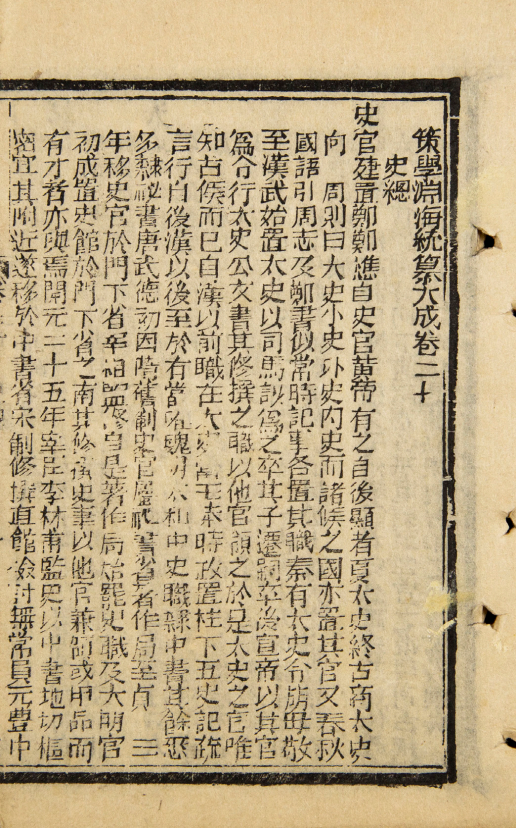 策學淵海統纂大成卷二十
史總
史官建置鄭鄭樵自史官黄帝有之自後顯者夏太史終古商太史
向　周則曰大史小史外史内史而諸侯之國亦置其官又春秋
國語引周志及鄭書似當時記事各置其職秦有太史令胡毋敬
至漢武始置太史以司馬談爲之卒其子遷嗣卒後宣帝以其官
爲令行太史公文書其修撰之職以他官領之於是太史之官唯
知占候而已自漢以前職在太史當王莽時改置柱下五史記疏
言行自後漢以後至於有當魏明太和中史職隸中書其餘悉
多隸秘書唐武德初因隋舊制史官屬秘書省著作局至貞　三
年移史官於門下省宰相監修自是著作局始罷史職及大明官
初成置史館於門下省之南其修撰史事以他官兼領或甲品而
有才者亦與焉開元二十五年宰臣李林甫監史以中書地切樞
密宜其附近遂移於中書省宋制修撰直館檢討無常員元豊中